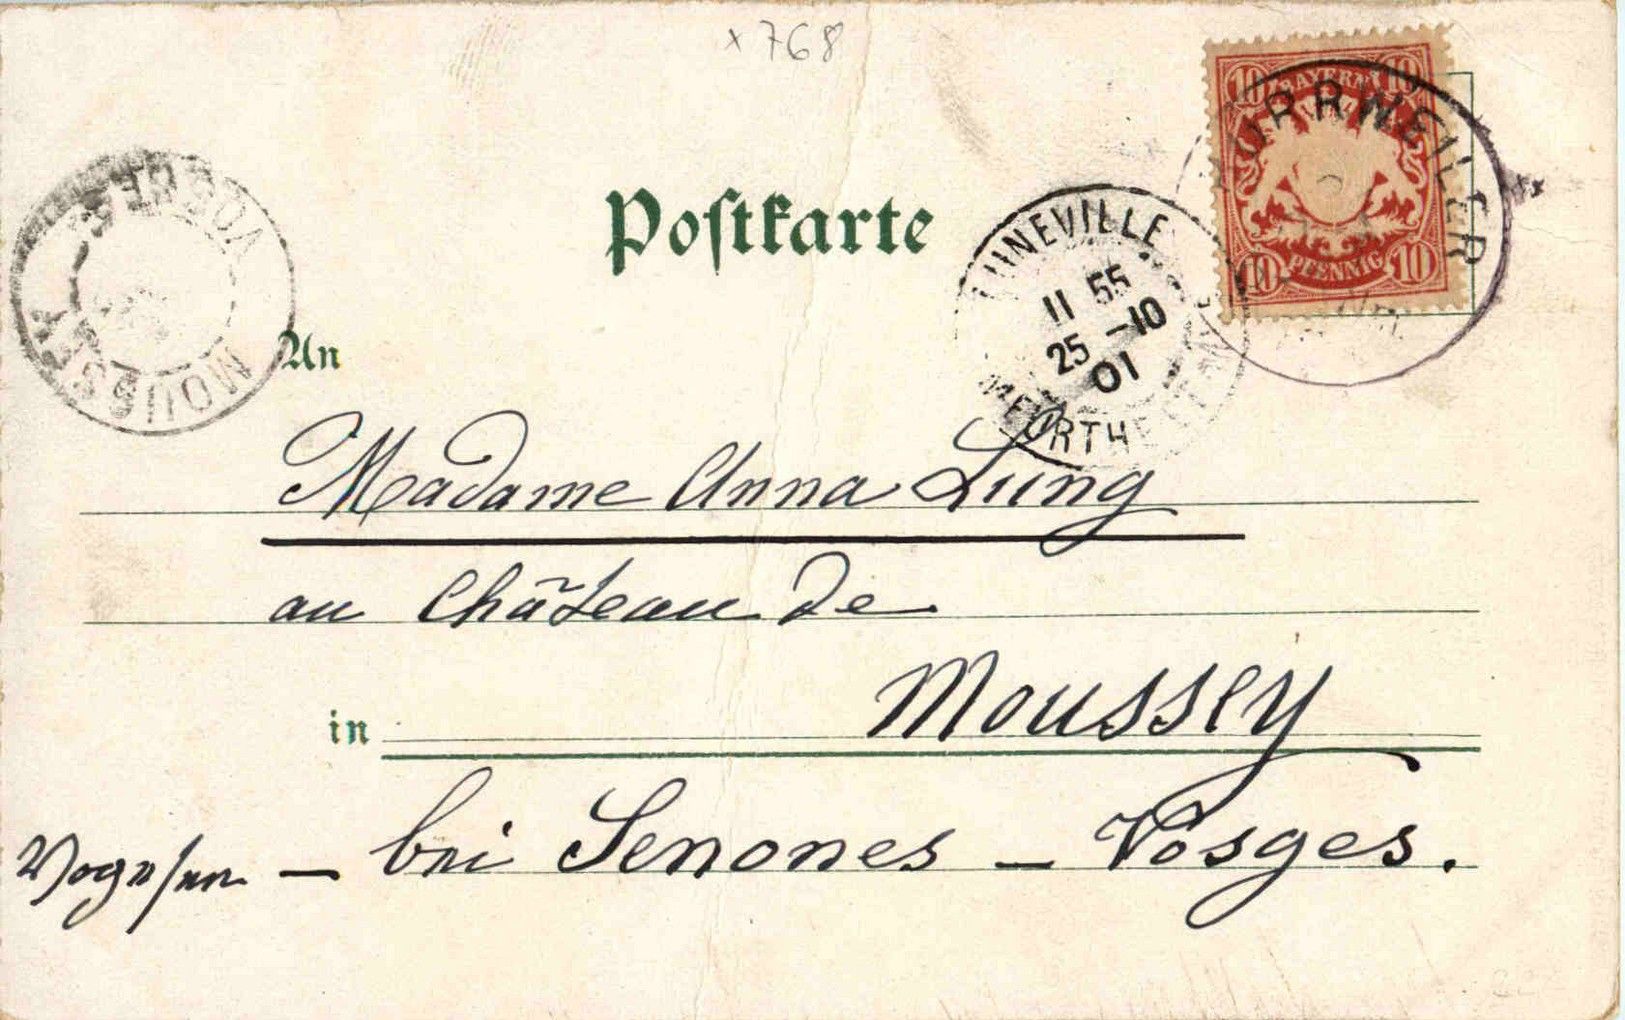 x 768
10 BAYERN 10
10 PFENNIG 10
Postkarte
LUNEVILLE
11 55
25 -10
01
MEURTHE ET M
VOSGES
MOUSSEY
An
Madame Anna Lung
au Château de
in Moussey
Vogesen - bei Senones - Vosges.